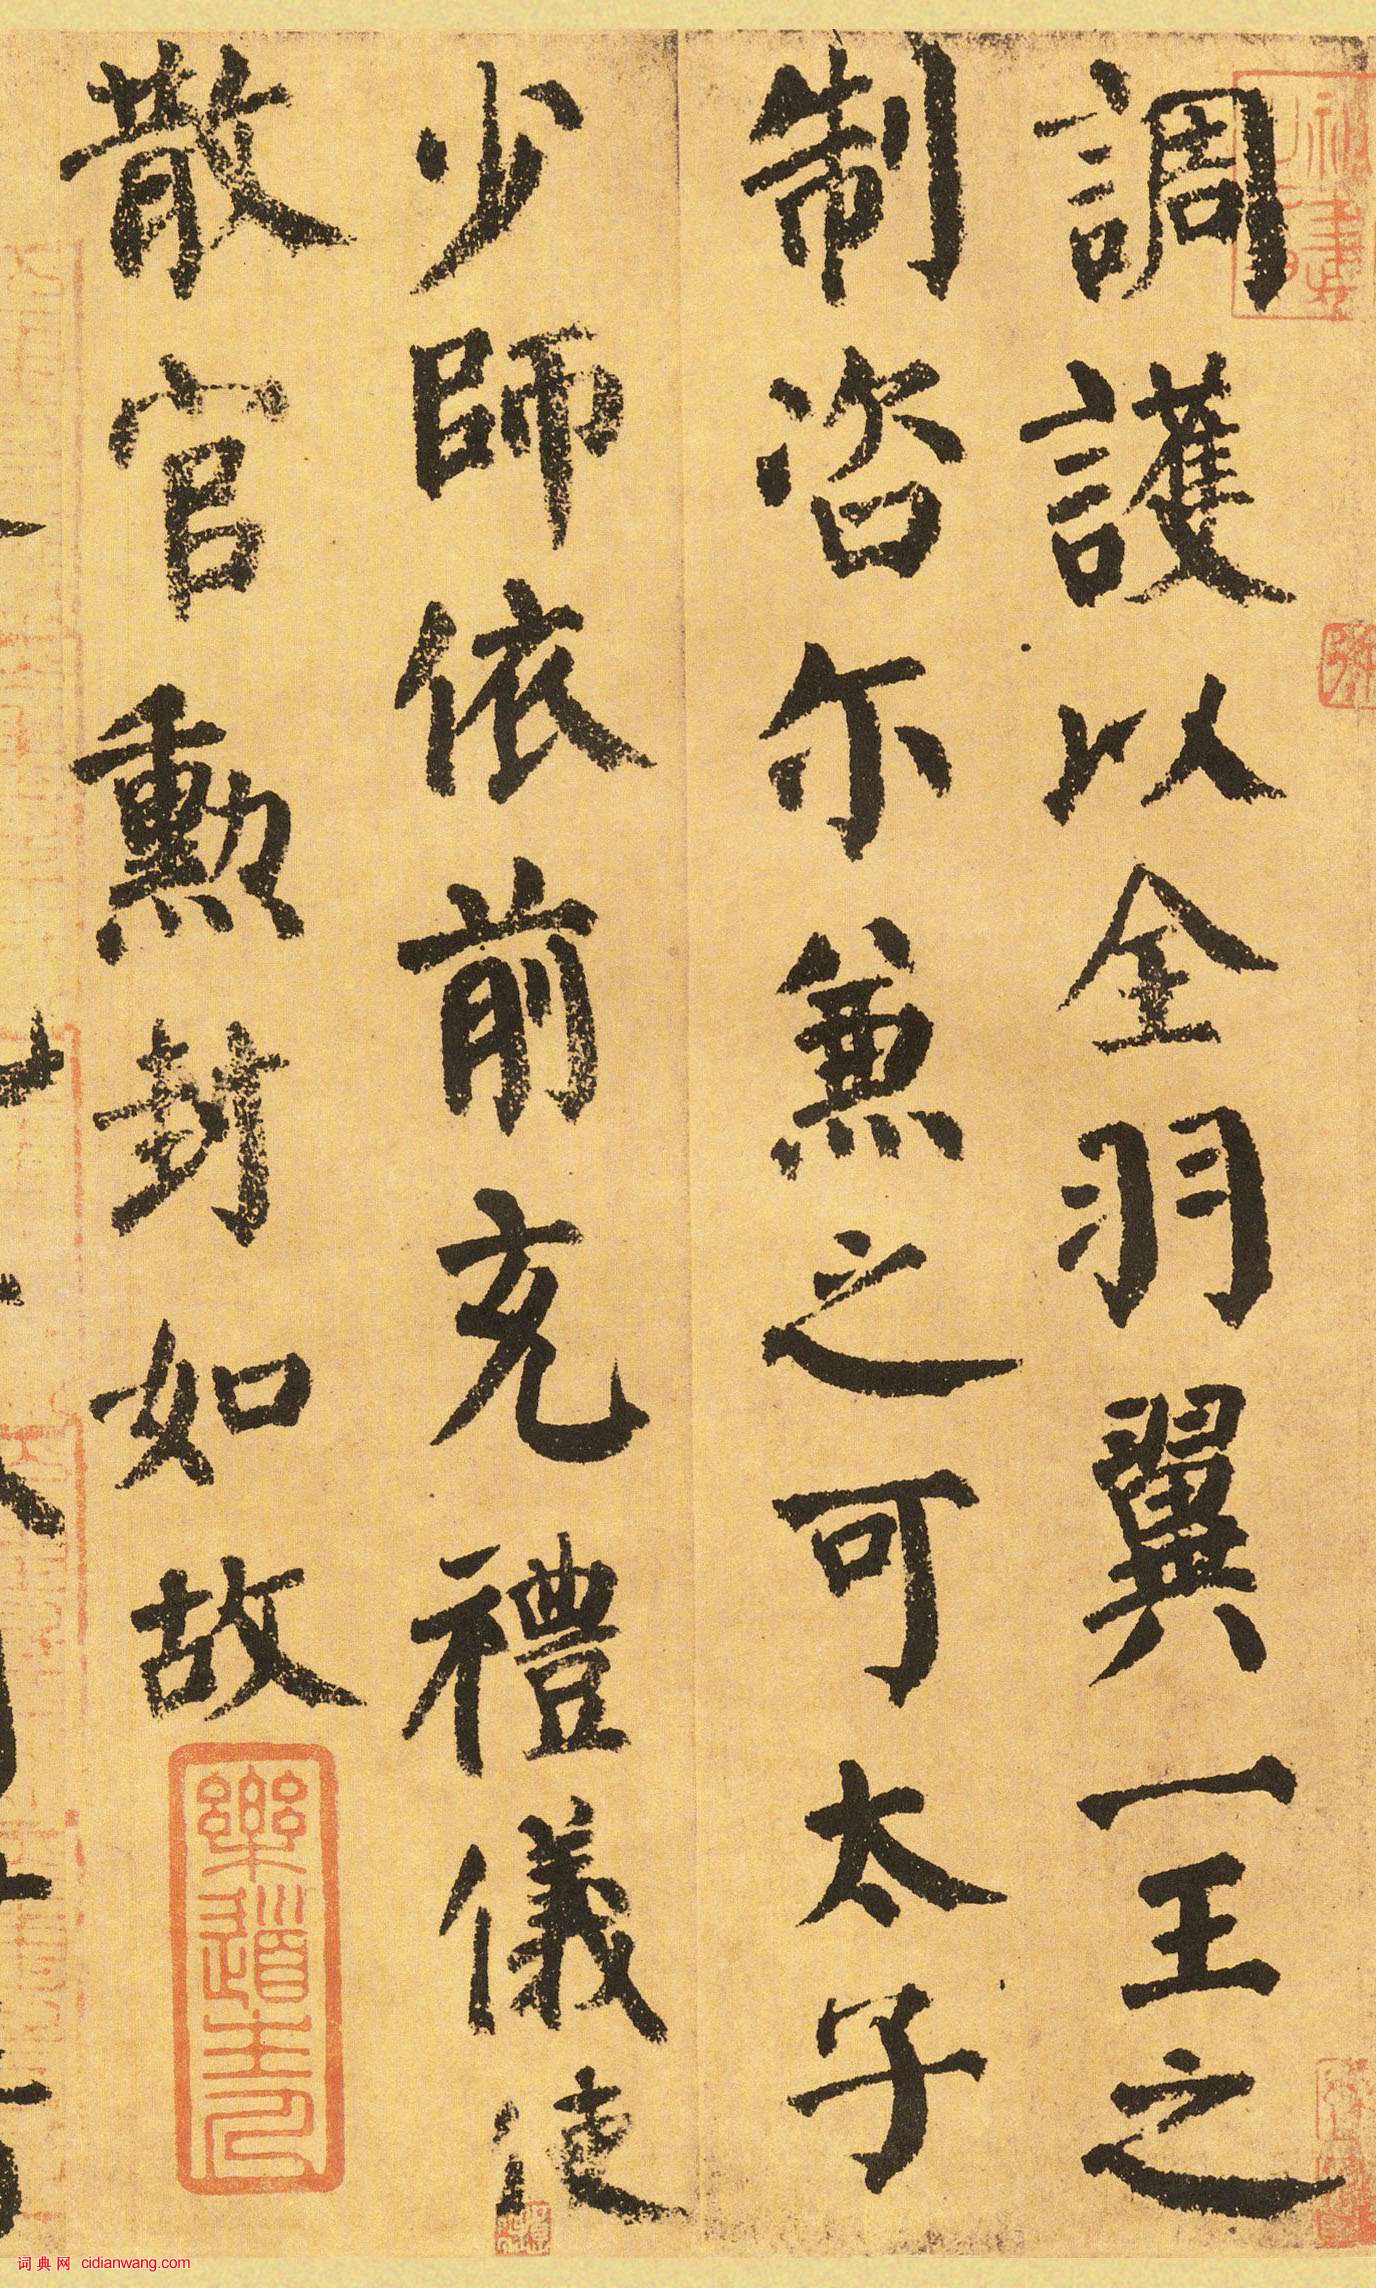 調護以全羽翼一王之
制咨尓兼之可太子
少師依前充禮儀使
散官勳封如故
樂道主人
词典网 cidianwang.com